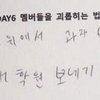 DAY6 멤버들을 괴롭히는 법
위에서 과자
학원 보내기